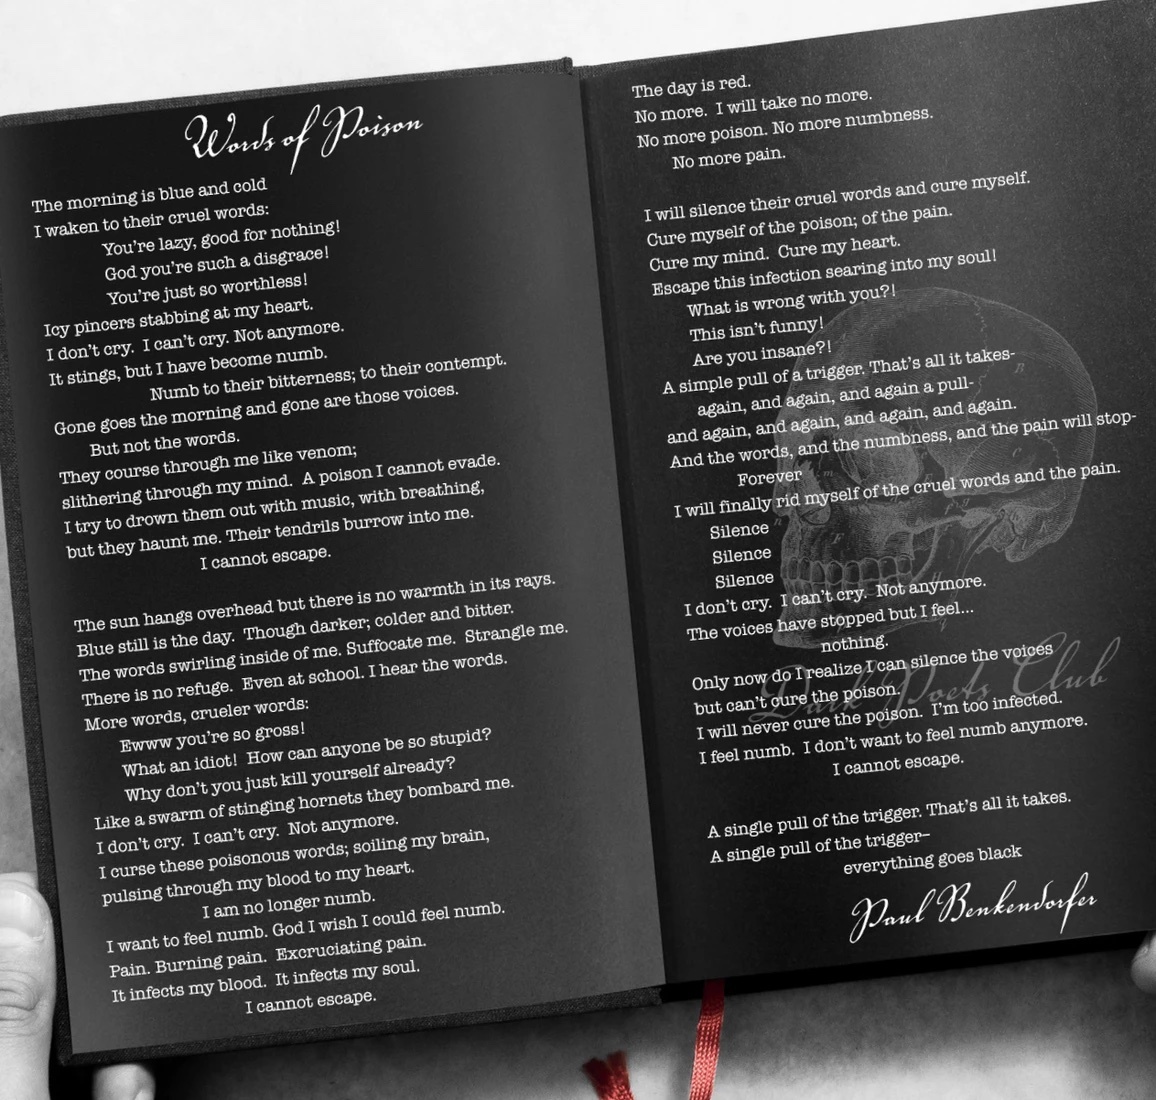 Words of Poison
The morning is blue and cold
I waken to their cruel words:
You're lazy, good for nothing!
God you're such a disgrace!
You're just so worthless!
Icy pincers stabbing at my heart.
I don't cry.  I can't cry. Not anymore.
It stings, but I have become numb.
Numb to their bitterness; to their contempt.
Gone goes the morning and gone are those voices.
But not the words.
They course through me like venom;
slithering through my mind.  A poison I cannot evade.
I try to drown them out with music, with breathing,
but they haunt me. Their tendrils burrow into me.
I cannot escape.
The sun hangs overhead but there is no warmth in its rays.
Blue still is the day.  Though darker; colder and bitter.
The words swirling inside of me. Suffocate me.  Strangle me.
There is no refuge.  Even at school. I hear the words.
More words, crueler words:
Ewww you're so gross!
What an idiot!  How can anyone be so stupid?
Why don't you just kill yourself already?
Like a swarm of stinging hornets they bombard me.
I don't cry.  I can't cry.  Not anymore.
I curse these poisonous words; soiling my brain,
pulsing through my blood to my heart.
I am no longer numb.
I want to feel numb. God I wish I could feel numb.
Pain. Burning pain.  Excruciating pain.
It infects my blood.  It infects my soul.
I cannot escape.
The day is red.
No more.  I will take no more.
No more poison. No more numbness.
No more pain.
I will silence their cruel words and cure myself.
Cure myself of the poison; of the pain.
Cure my mind.  Cure my heart.
Escape this infection searing into my soul!
What is wrong with you?!
This isn't funny!
Are you insane?!
A simple pull of a trigger. That's all it takes-
again, and again, and again a pull-
and again, and again, and again, and again.
And the words, and the numbness, and the pain will stop-
Forever
I will finally rid myself of the cruel words and the pain.
Silence
Silence
Silence
I don't cry.  I can't cry.  Not anymore.
The voices have stopped but I feel...
nothing.
Only now do I realize I can silence the voices
but can't cure the poison.
I will never cure the poison.  I'm too infected.
I feel numb.  I don't want to feel numb anymore.
I cannot escape.
A single pull of the trigger. That's all it takes.
A single pull of the trigger–
everything goes black
Paul Benkendorfer
Dark Poets Club